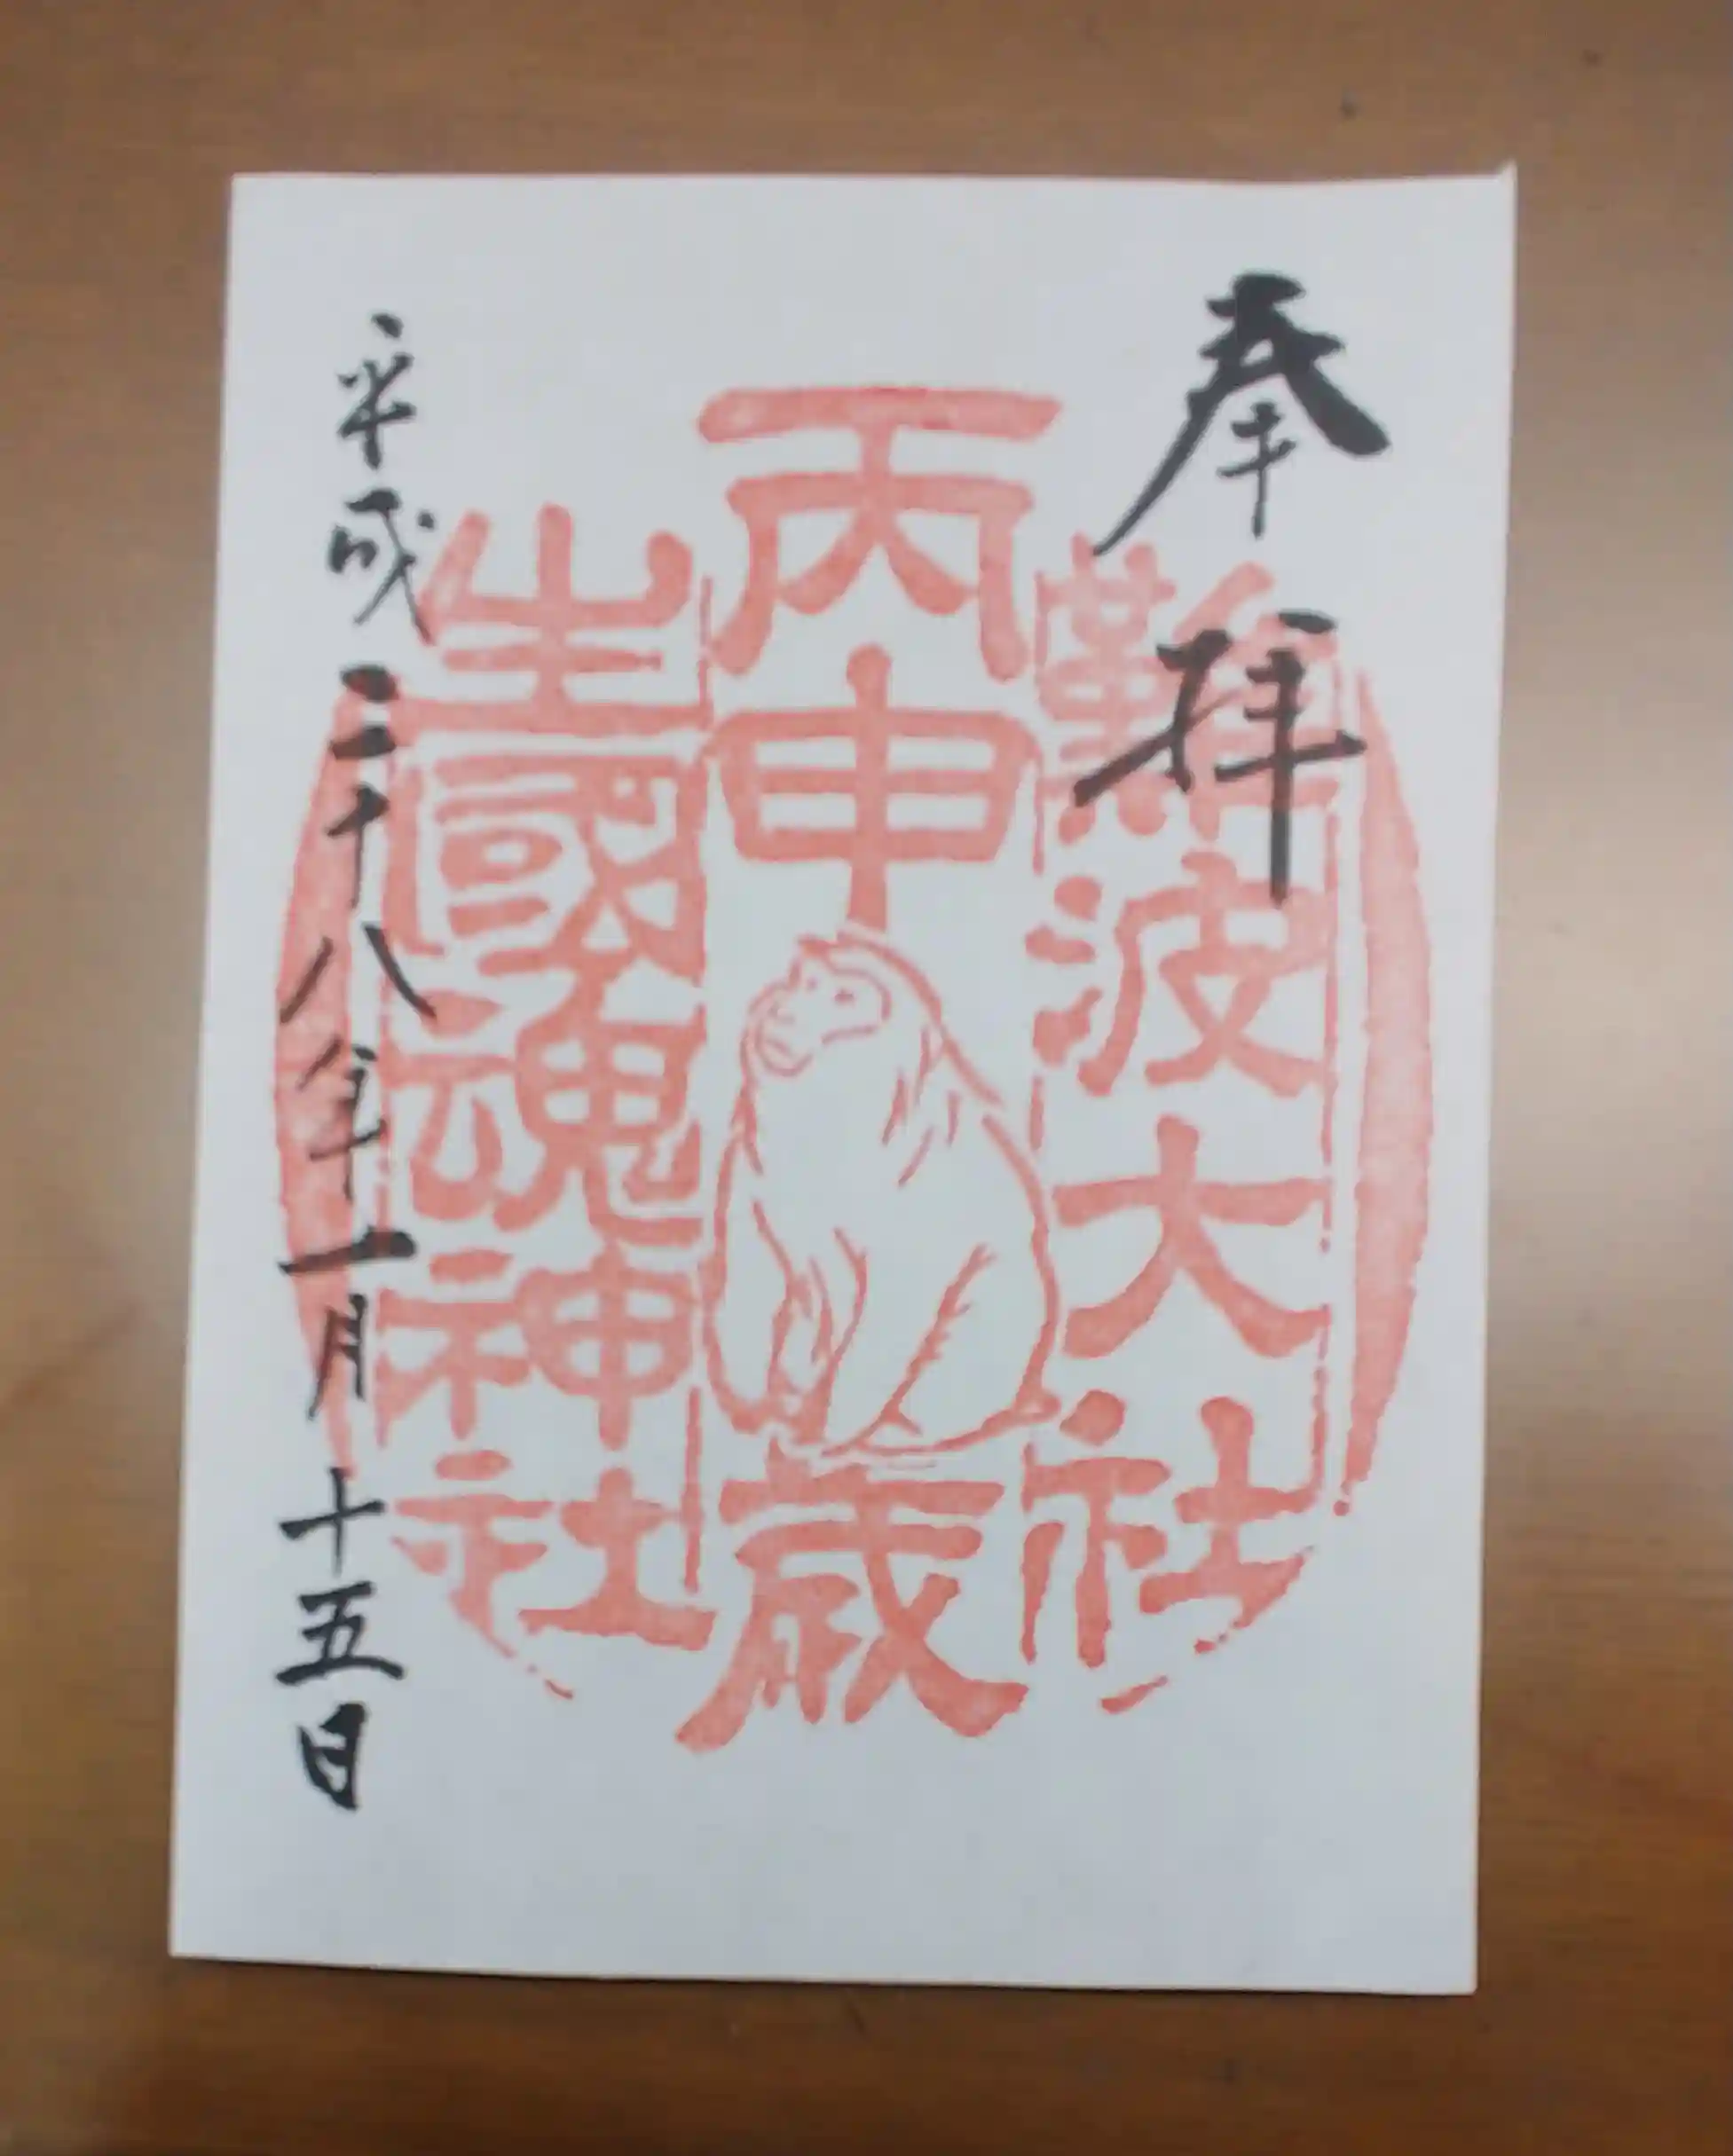 奉拝
難波大社
丙申歳
生國魂神社
平成二十八年一月十五日